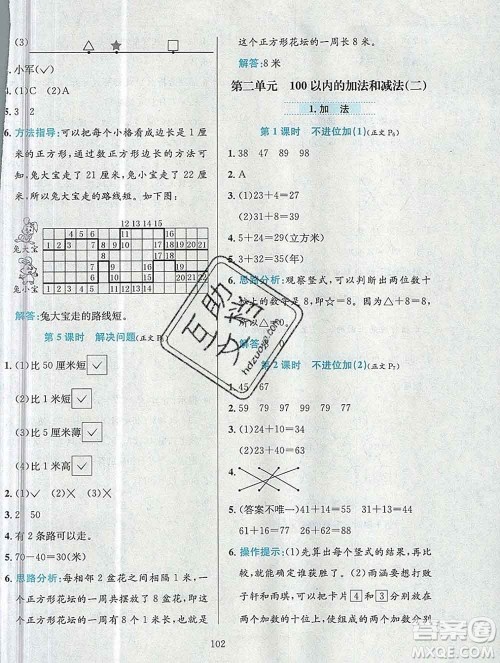 (3)
小军(✓)
4. (1)C (2)A
5. 3 2
6. 方法指导:可以把每个小格看成长 1 厘
米的正方形,通过数正方形边长的方法可
知,兔大宝走了 21 厘米,兔小宝走了 22 厘
米,所以兔大宝走的路线短。如下图:
12 13 14 15
4 5 6 7 11 16
兔大宝 1 2 3 8 9 10 17 18 19 20 21
兔小宝
解答:兔大宝走的路线短。
第 5 课时 解决问题
(1)比 50 厘米短 ✓
(2)比 1 米短 ✓
(3)比 5 米薄 ✓
(4)比 1 米高 ✓
2. (1)✓ (2)✕ (3)✕
3. 2 50
4. 有 2 条路可以走。
5. 70-40=30(米)
6. 思路分析:每相邻 2 盆花之间相隔 1 米,一
个正方形花坛的一周共摆放了 8 盆花,我
们可以知道一共有 8 个间隔 1 米,也就是
这个正方形花坛的一周长 8 米。
解答:8 米
第二单元 100 以内的加法和减法(二)
1. 加 法
第 1 课时 不进位加(1)(正文 P₆)
1. 38 47 89 98
2. A
3. (1)23+4=27
(2)31+6=37
4. 5+24=29(立方米)
5. 3+32=35(年)
6. 思路分析:观察竖式,可以判断出两位数十
解答:
第 2 课时 不进位加(2)(正文 P₇)
1. 45 67
2. 59 79 97 79 99 88
3. (1)24+10=34
(2)33+24=57
4.
5. (答案不唯一)34+16=50 37+13=50
31+16=47 33+11=44
6. 操作提示:(1)先算出每个竖式的结果,再比
较,谁大谁获胜。(2)开放题,要想雨涵赢了
肚子轩和雨琪,可以把卡片 4 和 3 分别放在两
个加数的十位上,使得两个加数的十位分别
102
互助文稿
hdzuoye.com
答案圈
MXQE.COM